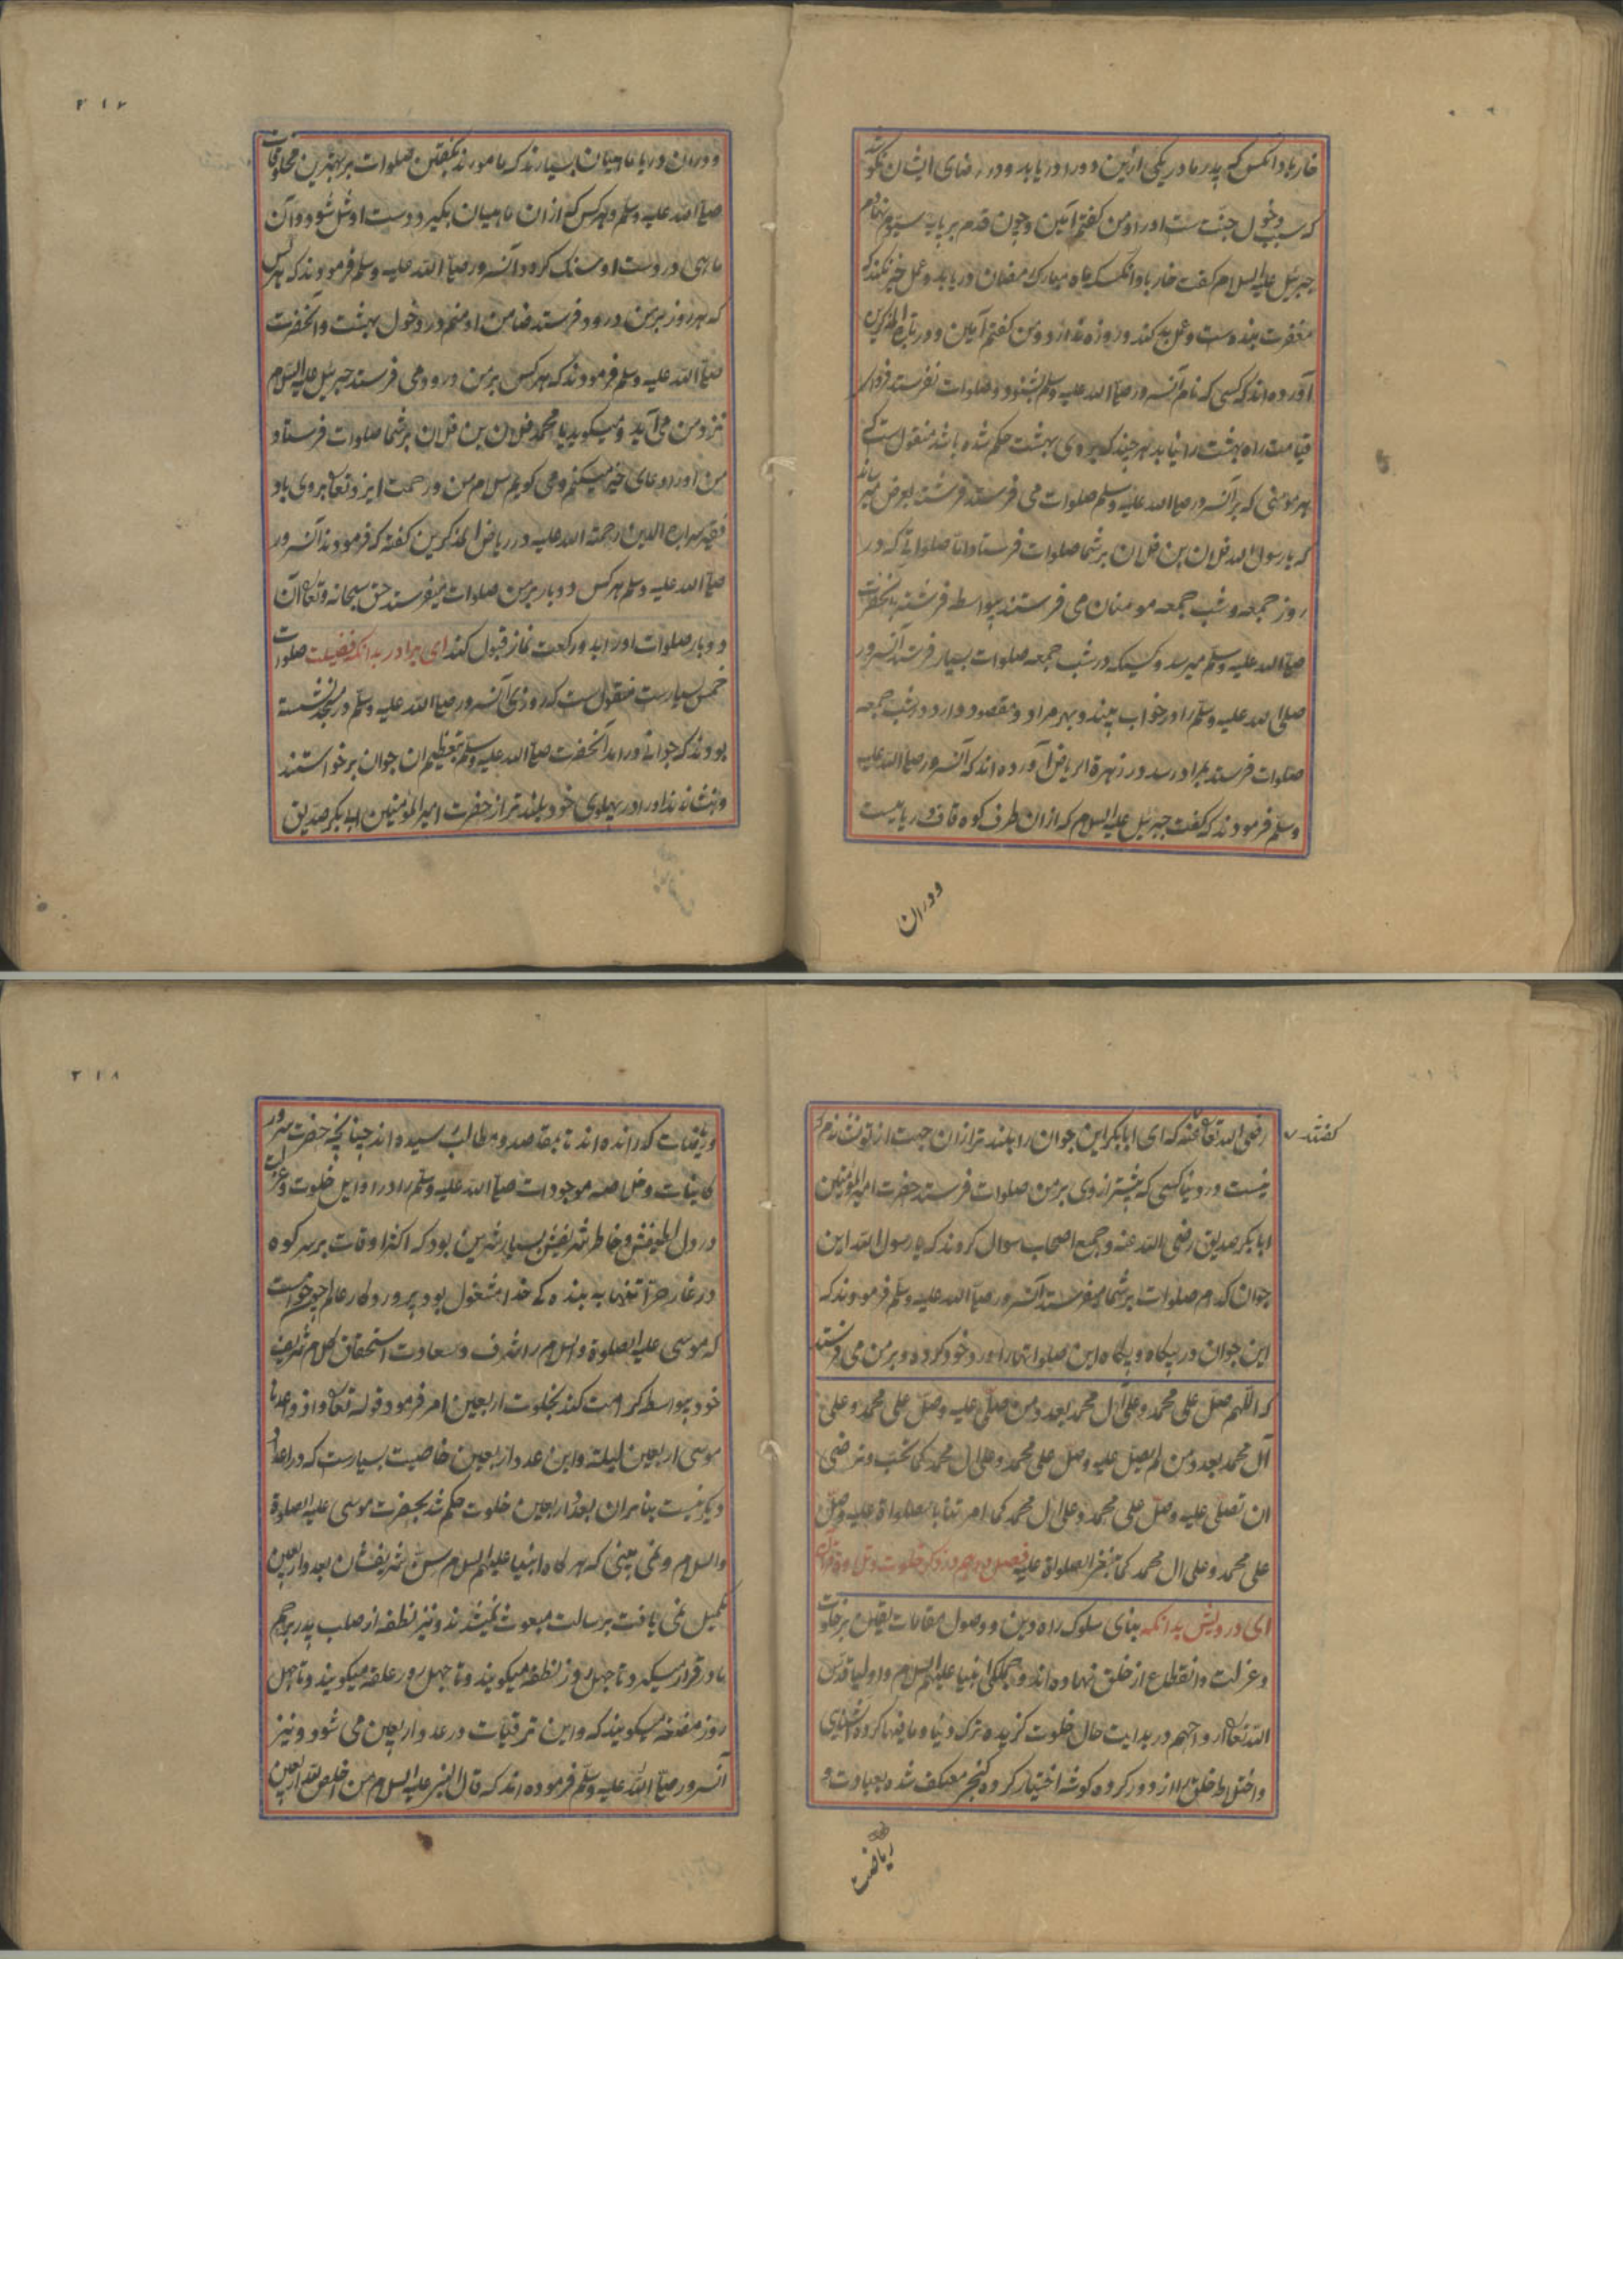 خار باد آنکس که پدر مادر یکی ازین دو را دریابد و در رضای ایشان نکوشد
که سبب دخول جنت ست او را و من گفتم آمین و چون قدم بر پایه سیوم نهادم
جبرئیل علیه السلام گفت خار باد آنکسکه ماه مبارک رمضان دریابد و عمل خیر نکند که
مغفرت بنده ست و عمل بد کند و روزه ندارد و من گفتم آمین و در ریاض المذکرین
آورده اند که کسی که نام آنسرور صلی الله علیه وسلم بشنود و صلوات نفرستد فردای
قیامت راه بهشت را نیابد هر چند که بروی بهشت حکم شده باشد منقول ست که
هر مومنی که بر آنسرور صلی الله علیه وسلم صلوات می فرستد فرشته بعرض میرساند
که یا رسول الله فلان بن فلان بر شما صلوات فرستاد اما صلواتی که در
روز جمعه و شب جمعه مومنان می فرستند بیواسطه فرشته بانحضرت
صلی الله علیه وسلم میرسد و کسیکه در شب جمعه صلوات بسیار فرستد آنسرور
صلی الله علیه وسلم را در خواب بیند و بهر مراد و مقصود دارد در شب جمعه
صلوات فرستد بمراد رسد و در زهرة الریاض آورده اند که آنسرور صلی الله علیه
وسلم فرمودند که گفت جبرئیل علیه السلام که از ان طرف کوه قاف دریاییست
و دران
۲۱۷
و دران دریا ماهیان بسیارند که مامورند بگفتن صلوات بر بهترین مخلوقات
صلی الله علیه وسلم و هر کس که از ان ماهیان بگیرد دست او شل شود و آن
ماهی در دست او سنگ گردد آنسرور صلی الله علیه وسلم فرمودند که هر کس
که هر روز بر من درود فرستد ضامن او منم در دخول بهشت و آنحضرت
صلی الله علیه وسلم فرمودند که هر کس بر من درود می فرستد جبرئیل علیه السلام
نزد من می آید و میگوید یا محمد فلان بن فلان بر شما صلوات فرستاد
من او را دعای خیر میکنم و می گویم سلام من و رحمت ایزد تعالی بروی باد
فقیه سراج الدین رحمة الله علیه در ریاض المذکرین گفته که فرمودند آنسرور
صلی الله علیه وسلم هر کس دو بار بر من صلوات میفرستد حق سبحانه و تعالی آن
دو بار صلوات او را بدو رکعت نماز قبول کند ای برادر بدانکه فضیلت صلوات
خمس بسیارست منقول ست که روزی آنسرور صلی الله علیه وسلم در مسجد نشسته
بودند که جوانی در امد آنحضرت صلی الله علیه وسلم بتعظیم ان جوان برخواستند
و بنشاندند او را در پهلوی خود بلند تر از حضرت امیر المؤمنین ابابکر صدیق
رضی الله تعالی عنه که ای ابابکر این جوان را بلند تر ازان جهت از تو نشاندم که
گفتند
نیست در دنیا کسی که بیشتر از وی بر من صلوات فرستد حضرت امیر المؤمنین
ابابکر صدیق رضی الله عنه و جمیع اصحاب سوال کردند که یا رسول الله این
جوان کدام صلوات بر شما میفرستد آنسرور صلی الله علیه وسلم فرمودند که
این جوان در پگاه و بیگاه این صلواتها را ورد خود کرده و بر من می فرستد
که اللهم صل علی محمد و علی آل محمد بعدد من صلی علیه وصل علی محمد و علی
آل محمد بعدد من لم یصل علیه وصل علی محمد و علی ال محمد کما تحب و ترضی
ان تصلی علیه وصل علی محمد و علی ال محمد کما امرتنا بالصلواة علیه وصل
علی محمد و علی ال محمد کما ینبغی الصلواة علیه فصل در ذکر خلوت و
ای درویش بدانکه بنای سلوک راه دین و وصول مقامات یقین بر خلوت
و عزلت و انقطاع از خلق نهاده اند و جملگی انبیا علیهم السلام و اولیا قدس
الله تعالی ارواحهم در بدایت حال خلوت گزیده ترک دنیا و مافیها کرده
و اختلاط خلق را از دور کرده گوشه اختیار کرده کنج معتکف شده بعبادت و
ریاضت
۲۱۸
و ریاضات گذرانده اند تا بمقاصد و مطالب رسیده اند چنانچه حضرت سرور
کاینات و خلاصه موجودات صلی الله علیه وسلم را در اوایل خلوت و عزلت
در دل لطیفش و خاطر شریفش بسیار شیرین بود که اکثر اوقات بر سر کوه
در غار حرا تنها به بنده گی خدا مشغول بود پروردگار عالم چو خواست
که موسی علیه الصلوة والسلام را شرف و سعادت استحقاق کلام شریف
خود بیواسطه کرامت کند بخلوت اربعین امر فرمود قوله تعالی و اذ واعدنا
موسی اربعین لیلة و این عدد اربعین خاصیت بسیارست که در اعداد
دیگر نیست بنابران بعدد اربعین خلوت حکم شد بحضرت موسی علیه الصلوة
والسلام و نمی بینی که هر گاه انبیا علیهم السلام سن شریفشان بعدد اربعین
تکمیل نمی یافت برسالت مبعوث نمیشدند و نیز نطفه از صلب پدر برحم
مادر قرار میگیرد تا چهل روز نطفه میگویند و تا چهل روز علقه میگویند و تا چهل
روز مضغه میگویند که و این ترقیات در عدد اربعین می شود و نیز
آنسرور صلی الله علیه وسلم فرموده اند که قال النبی علیه السلام من اخلص لله اربعین